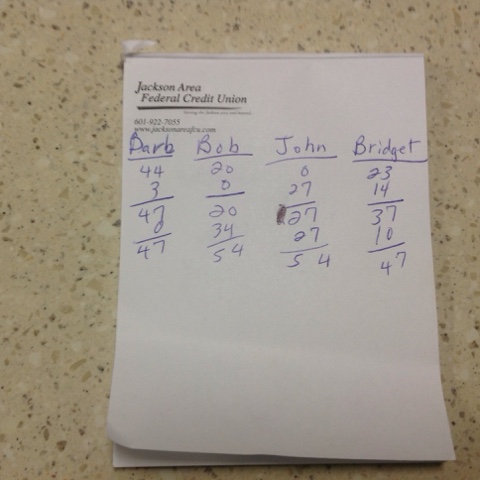 Jackson Area
Federal Credit Union
601-922-7055
www.jacksonareafcu.com
Barb Bob John Bridget
44 20 0 23
3 0 27 14
47 20 27 37
0 34 27 10
47 54 54 47